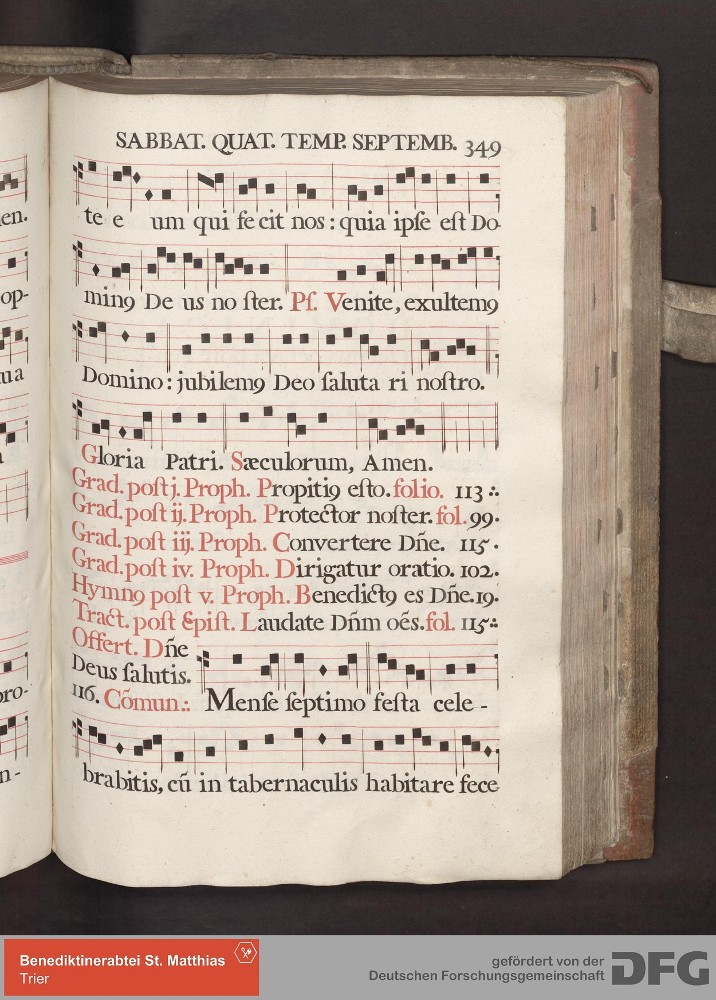 SABBAT. QUAT. TEMP. SEPTEMB. 349
te e um qui fe cit nos : quia ipſe eſt Do-
minꝯ De us no ſter. Pſ. Venite, exultemꝯ
Domino : jubilemꝯ Deo ſaluta ri noſtro.
Gloria Patri. Sæculorum, Amen.
Grad. poſt j. Proph. Propitiꝯ eſto. folio. 113 ∴
Grad. poſt ij. Proph. Protector noſter. fol. 99.
Grad. poſt iij. Proph. Convertere Dñe. 115 .
Grad. poſt iv. Proph. Dirigatur oratio. 102.
Hymnꝯ poſt v. Proph. Benedictꝯ es Dñe. 19.
Tract. poſt Epiſt. Laudate Dñm oẽs. fol. 115 ∴
Offert. Dñe
Deus ſalutis.
116. Cõmun.: Menſe ſeptimo feſta cele -
brabitis, cũ in tabernaculis habitare fece
en.
op-
ua
a
oro-
n-
Benediktinerabtei St. Matthias
Trier
gefördert von der
Deutschen Forschungsgemeinschaft DFG